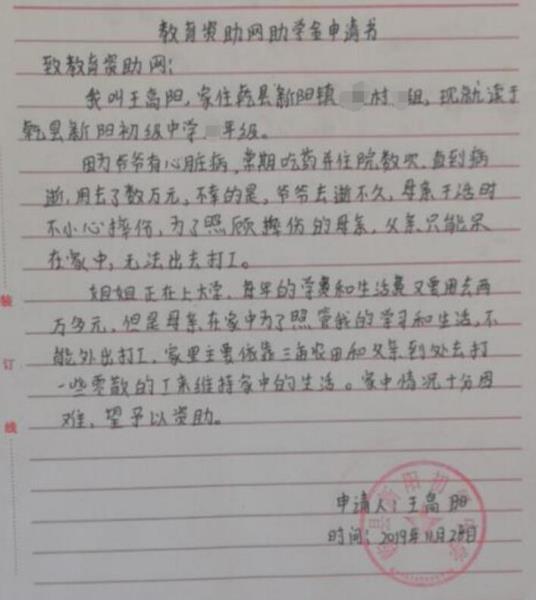 教育资助网助学金申请书
致教育资助网：
我叫王高阳，家住乾县新阳镇 村 组，现就读于
乾县新阳初级中学 年级。
因为爷爷有心脏病，常期吃药并住院数次，直到病
逝，用去了数万元，不幸的是，爷爷去逝不久，母亲干活时
不小心摔伤，为了照顾摔伤的母亲，父亲只能呆
在家中，无法出去打工。
姐姐正在上大学，每年的学费和生活费又要用去两
万多元，但是母亲在家中为了照管我的学习和生活，不
能外出打工，家里主要依靠三亩农田和父亲到处去打
一些零散的工来维持家中的生活。家中情况十分困
难，望予以资助。
装
订
线
申请人：王高阳
时间：2019年11月28日